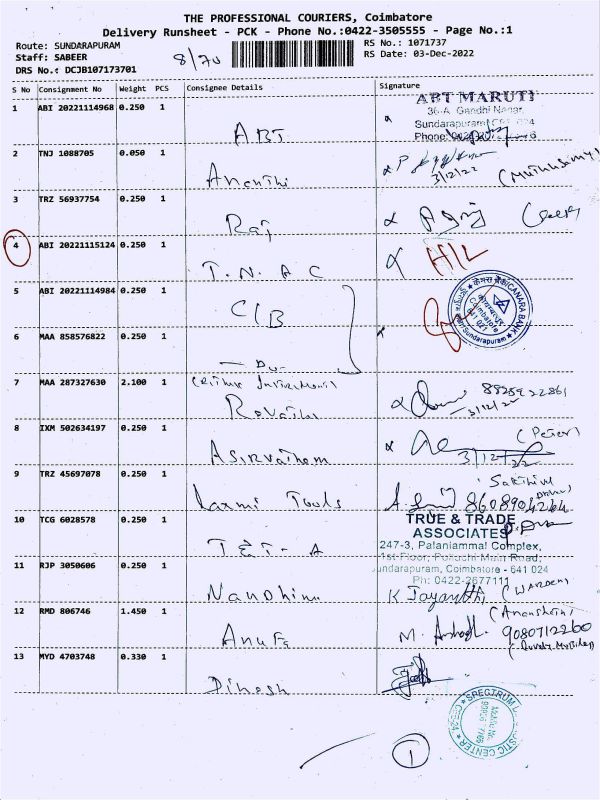 THE PROFESSIONAL COURIERS, Coimbatore
Delivery Runsheet - PCK - Phone No.:0422-3505555 - Page No.:1
Route: SUNDARAPURAM
Staff: SABEER
DRS No.: DCJB107173701
8/70
RS No.: 1071737
RS Date: 03-Dec-2022
S No Consignment No Weight PCS Consignee Details Signature
1 ABI 20221114968 0.250 1
ABT
ABT MARUTI
36-A, Gandhi Nagar,
Sundarapuram
Phone:
2 TNJ 1088705 0.050 1
Ananthi
3/12/22
3 TRZ 56937754 0.250 1
Raj
4 ABI 20221115124 0.250 1
T.N.A C
H/L
5 ABI 20221114984 0.250 1
C/B
CANARA BANK
Coimbatore
641 021
Sundarapuram
6 MAA 858576822 0.250 1
- Du -
7 MAA 287327630 2.100 1
Revathi
3/12/22
8 IXM 502634197 0.250 1
Asirvatham
(Peter)
3/12/22
9 TRZ 45697078 0.250 1
Laxmi Tools
Sakthivel
8608904264
10 TCG 6028578 0.250 1
T & T - A
TRUE & TRADE
ASSOCIATES
247-3, Palaniammal Complex,
1st Floor, Pollachi Main Road,
Sundarapuram, Coimbatore - 641 024
Ph: 0422-2677111
11 RJP 3050606 0.250 1
Nandhini
K Jayanthi
(WARDEN)
12 RMD 806746 1.450 1
Anusa
9080712260
13 MYD 4703748 0.330 1
Dinesh
SPECTRUM DIAGNOSTIC CENTER
Mobile No.
CBE-24
1